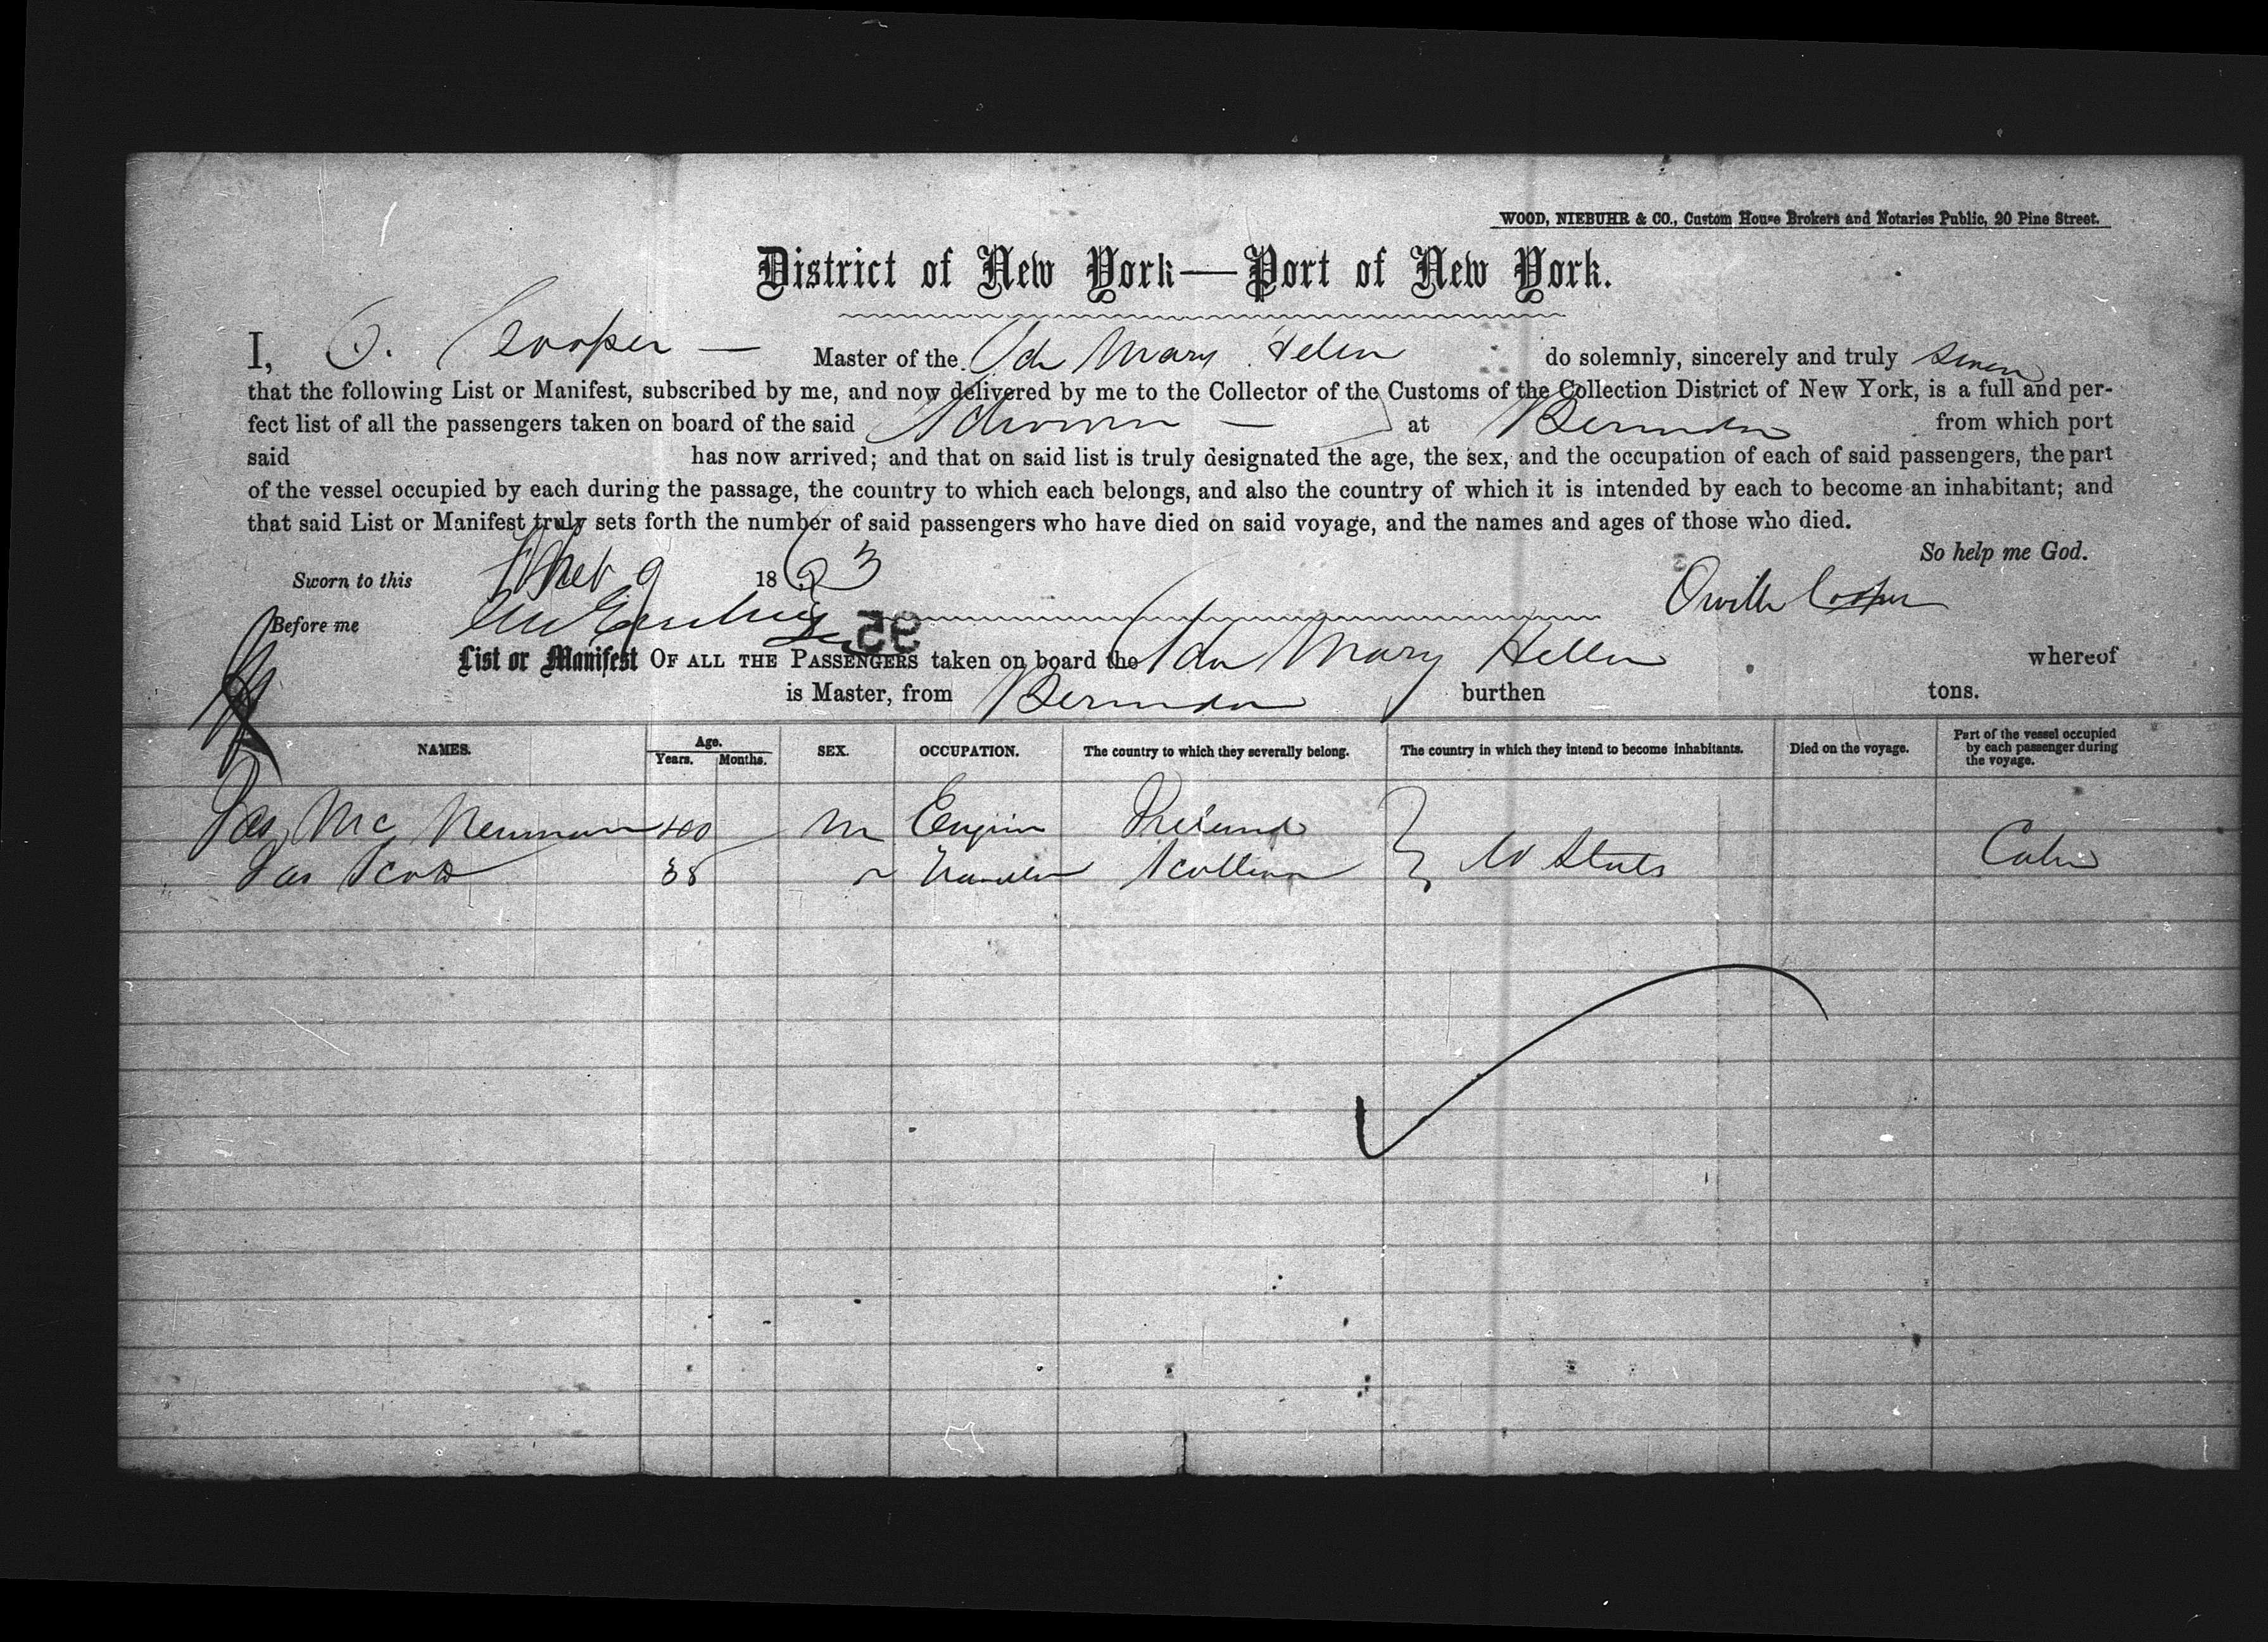 WOOD, NIEBUHR & CO., Custom House Brokers and Notaries Public, 20 Pine Street.
District of New York—Port of New York.
I, O. Cooper — Master of the Mary Helen do solemnly, sincerely and truly swear
that the following List or Manifest, subscribed by me, and now delivered by me to the Collector of the Customs of the Collection District of New York, is a full and per-
fect list of all the passengers taken on board of the said Schooner — at Bermuda from which port
said has now arrived; and that on said list is truly designated the age, the sex, and the occupation of each of said passengers, the part
of the vessel occupied by each during the passage, the country to which each belongs, and also the country of which it is intended by each to become an inhabitant; and
that said List or Manifest truly sets forth the number of said passengers who have died on said voyage, and the names and ages of those who died.
So help me God.
Sworn to this 9 1863
Orville Cooper
Before me
95
List or Manifest OF ALL THE PASSENGERS taken on board the Ida Mary Hellen whereof
is Master, from Bermuda burthen tons.
NAMES. Age. Years. Months. SEX. OCCUPATION. The country to which they severally belong. The country in which they intend to become inhabitants. Died on the voyage. Part of the vessel occupied by each passenger during the voyage.
Jas Mc 40 m Engin Ireland
Jas Scott 38 Scotland U States Cabin